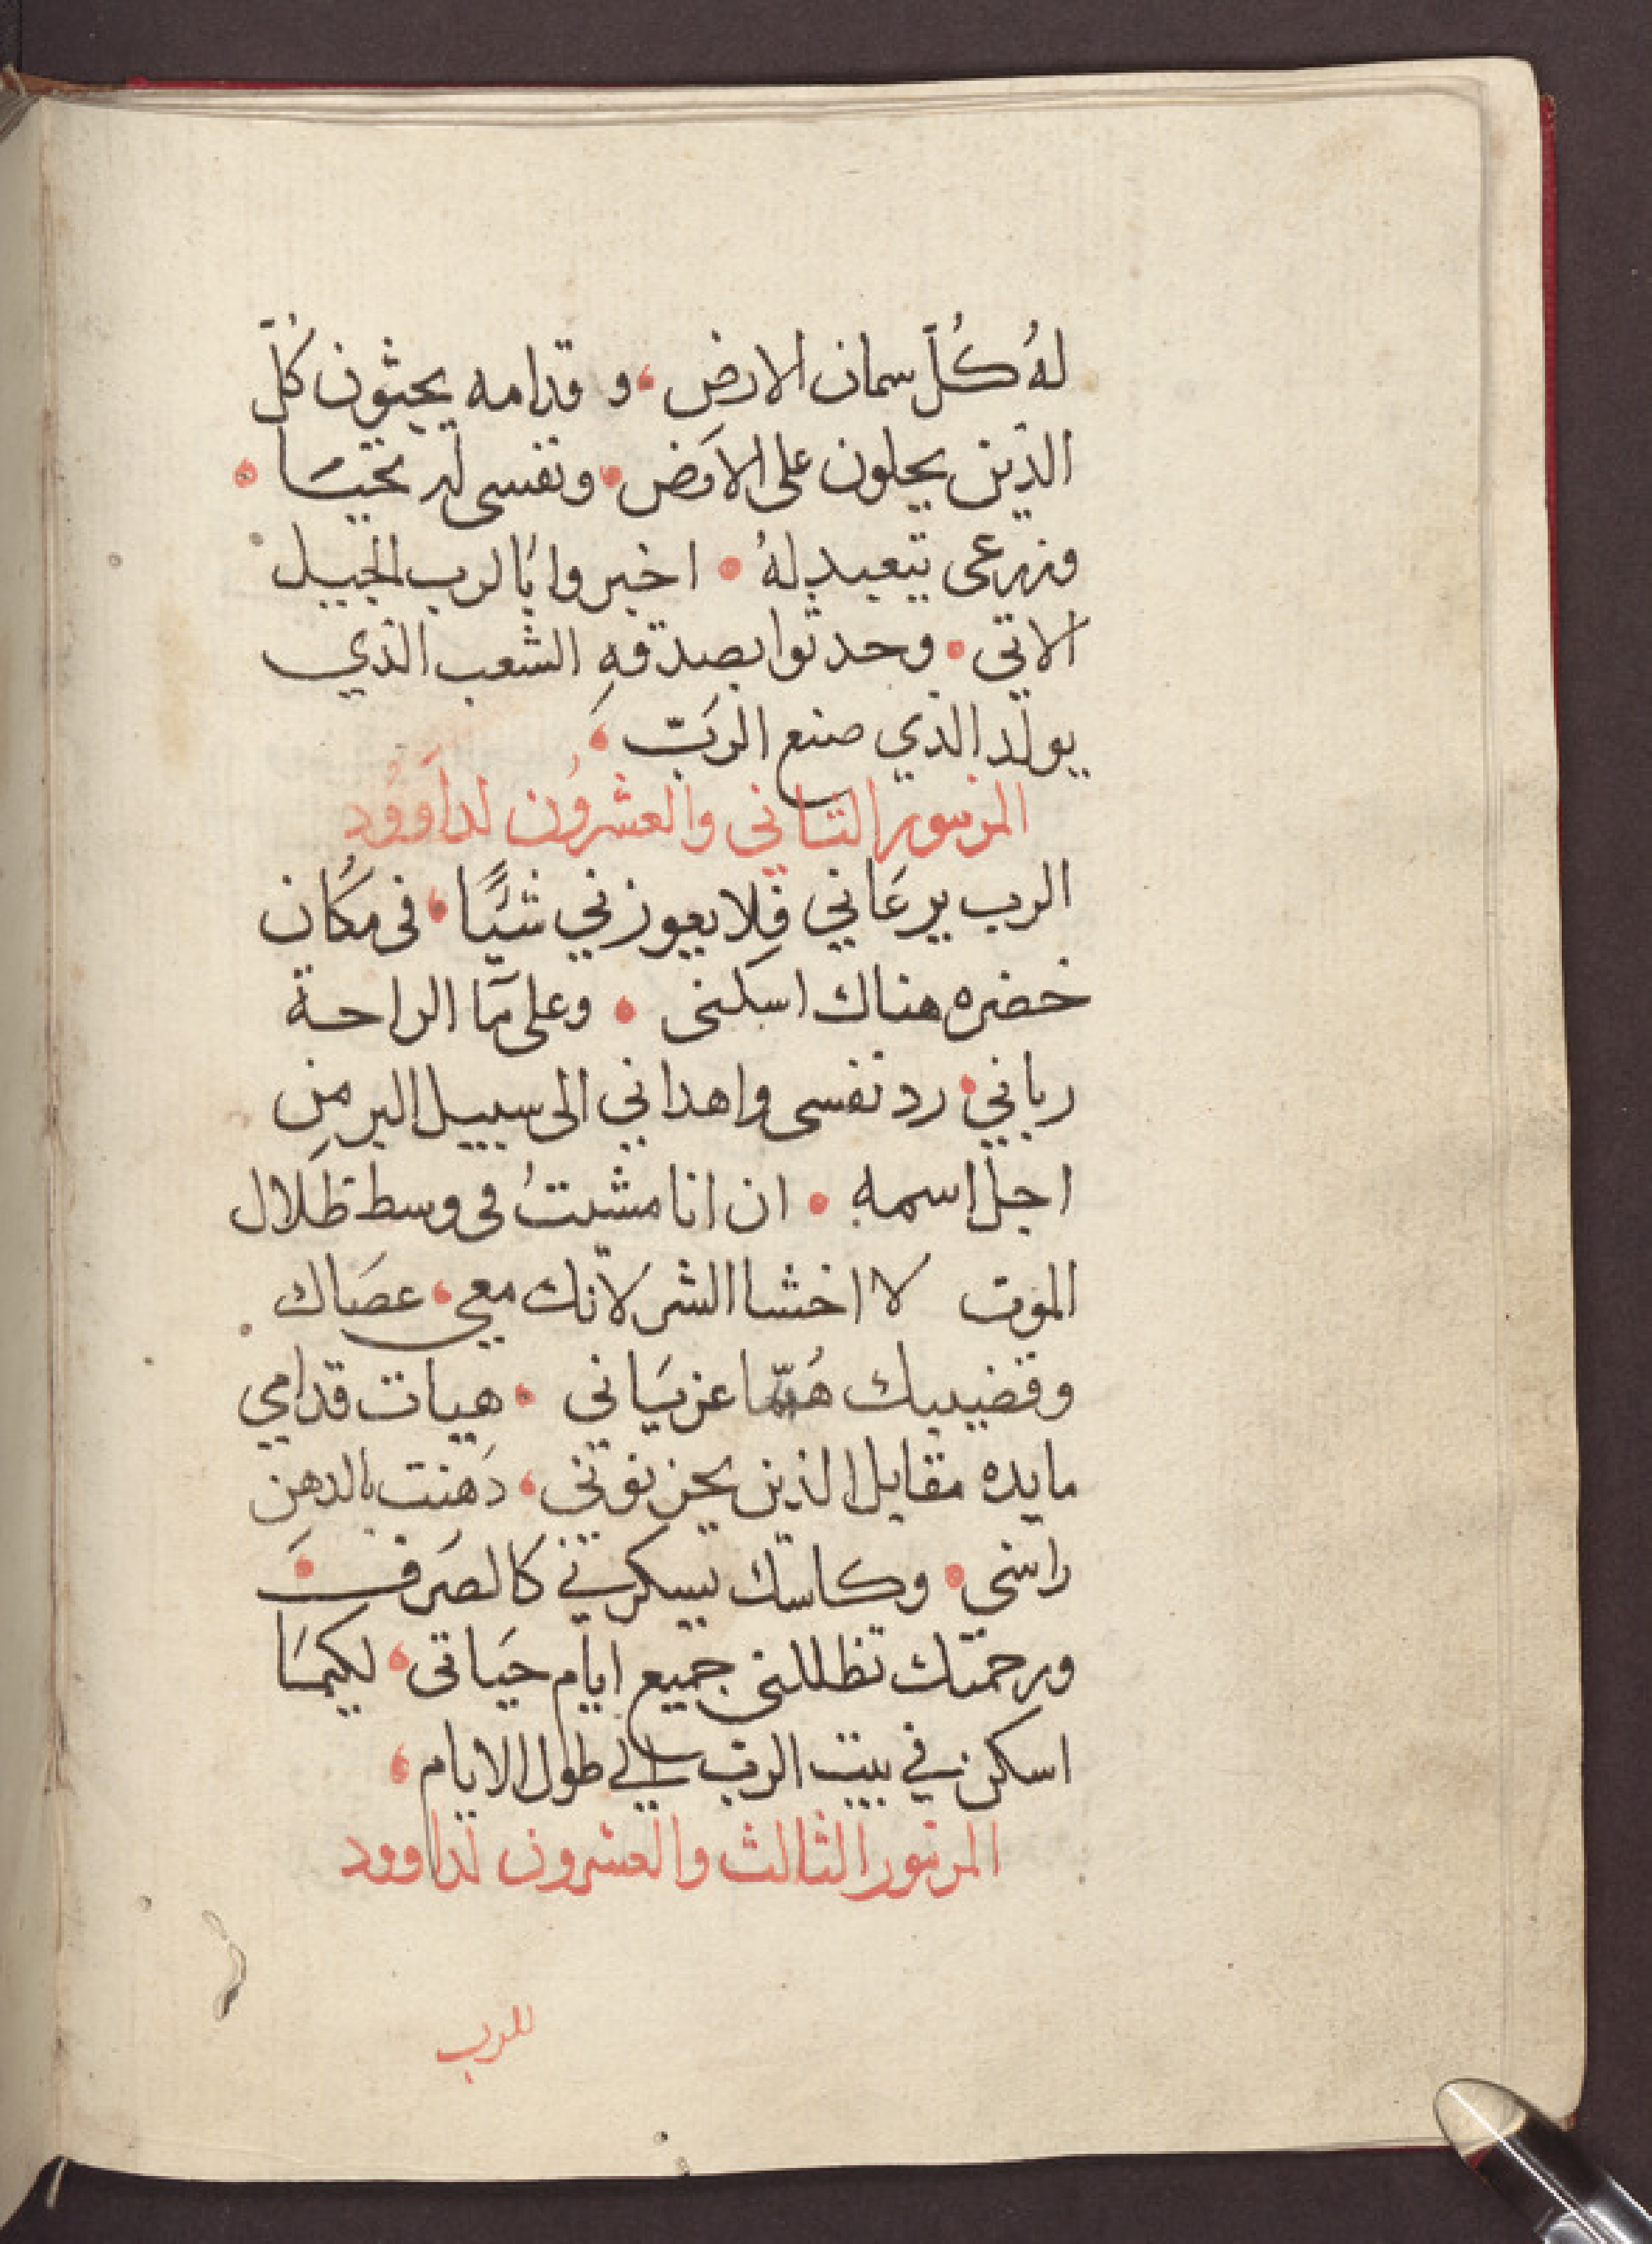 لهُ كُلّ سمان الارض، و قدامه يجثون كُلّ
الذين يحلون على الارض • ونفسى له تحيَا •
وزرعى تتعبد لهُ • اخبروا بالرب الجيل
الاتي • وحدثوا بصدقهِ الشعب الذي
يولد الذي صنع الرَبّ ،
المزمور التاني والعشرُون لداوُود
الرب يرعَاني فلا يعوزني شيًّا ، فى مكُان
خضره هناك اسكننى • وعلى مَا الراحة
رباني • رد نفسى واهداني الى سبيل البر من
اجل اسمهِ • ان انا مشيتُ فى وسط ظلال
الموت لا اخشا الشر لانك معي ، عصَاك
وقضيبك هُمّا عزيَاني • هيات قدامي
مايده مقابل الذين يحزنوني ، دَهنت بالدهن
راسي • وكاسك يسكرني كالصَرف •
ورحمتك تظللنى جميع ايام حيَاتى ، لكيمَا
اسكن في بيت الرب الي طول الايام ،
المزمور الثالث والعشرون لداوود
للرب